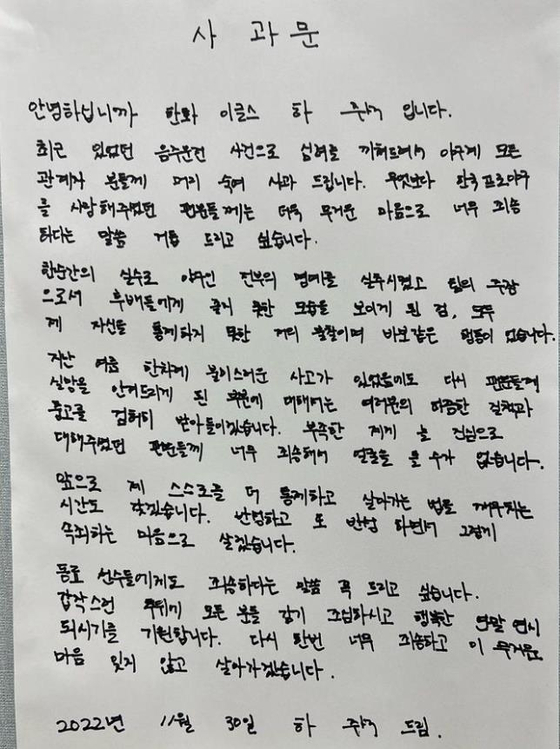 사 과 문
안녕하십니까 한화 이글스 하 주석 입니다.
최근 있었던 음주운전 사건으로 심려를 끼쳐드려서 야구계 모든
관계자 분들께 머리 숙여 사과 드립니다. 무엇보다 한국프로야구
를 사랑해주었던 팬분들께는 더욱 무거운 마음으로 너무 죄송
하다는 말씀 거듭 드리고 싶습니다.
한순간의 실수로 야구인 전부의 명예를 실추시켰고 팀의 주장
으로서 후배들에게 좋지 못한 모습을 보이게 된 점, 모두
제 자신을 통제하지 못한 저의 불찰이며 바보같은 행동이 없습니다.
지난 여름 한차례 불미스러운 사고가 있었음에도 다시 팬분들께
실망을 안겨드리게 된 부분에 대해서는 여러분의 따끔한 질책과
충고를 겸허히 받아들이겠습니다. 부족한 제게 늘 진심으로
대해주었던 팬분들께 너무 죄송해서 얼굴을 들 수가 없습니다.
앞으로 제 스스로를 더 통제하고 살아가는 법을 깨우치는
시간도 갖겠습니다. 반성하고 또 반성 하면서 그렇게
속죄하는 마음으로 살겠습니다.
동료 선수들에게도 죄송하다는 말씀 꼭 드리고 싶습니다.
갑작스런 추위에 모든 분들 감기 조심하시고 행복한 연말 연시
되시기를 기원합니다. 다시 한번 너무 죄송하고 이 무거운
마음 잊지 않고 살아가겠습니다.
2022년 11월 30일 하 주석 드림.